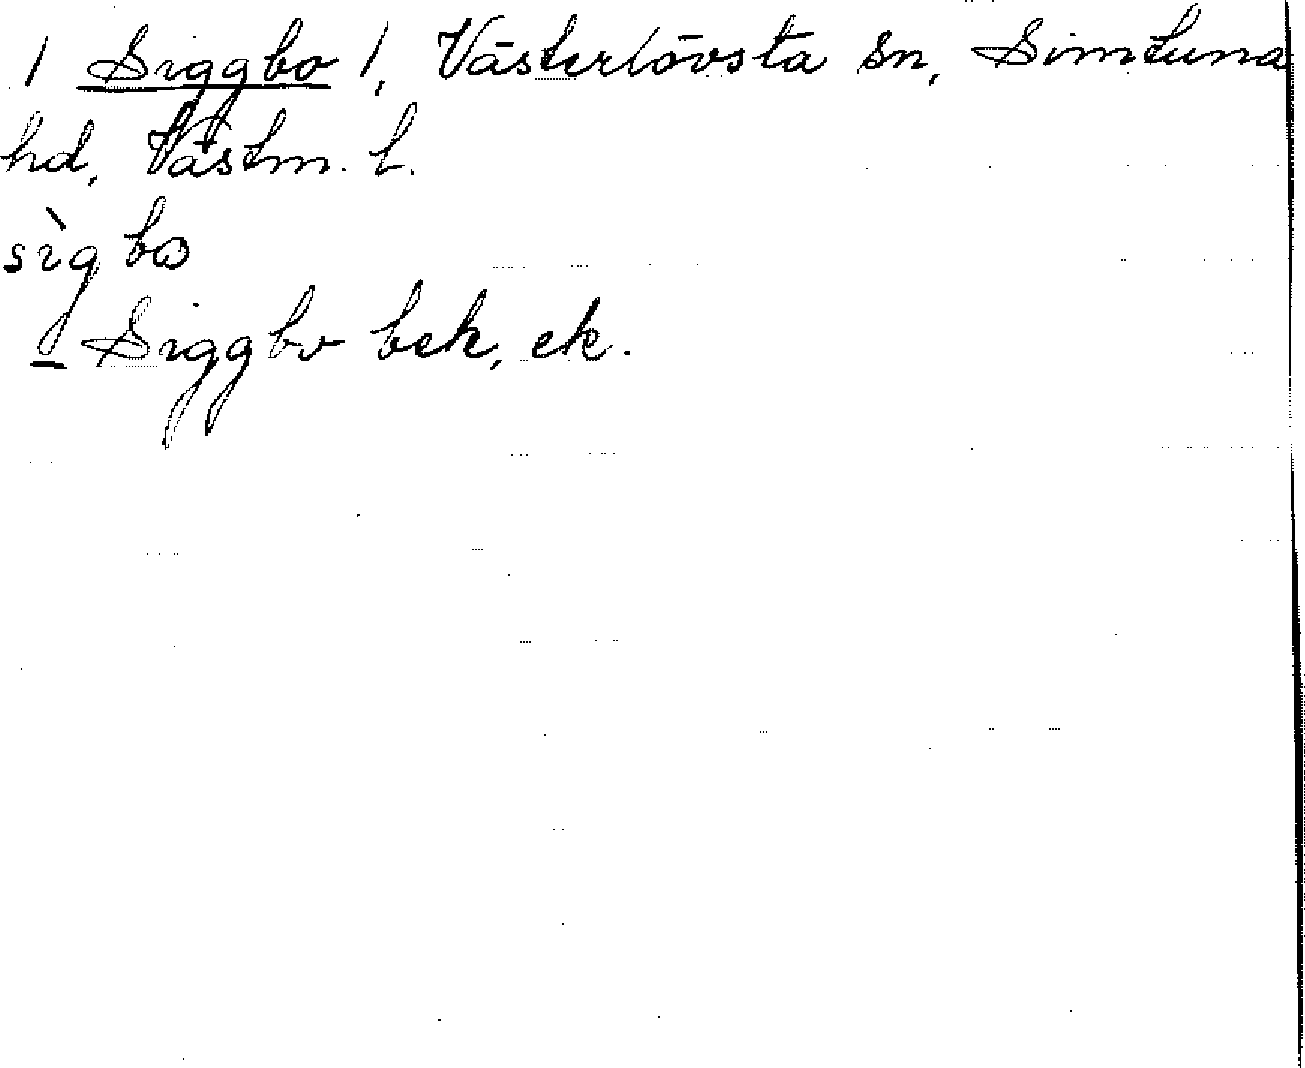 / Siggbo /, Västerlövsta sn, Simtuna
hd, Västm. l.
sìgbω
– Siggbo bek, ek.